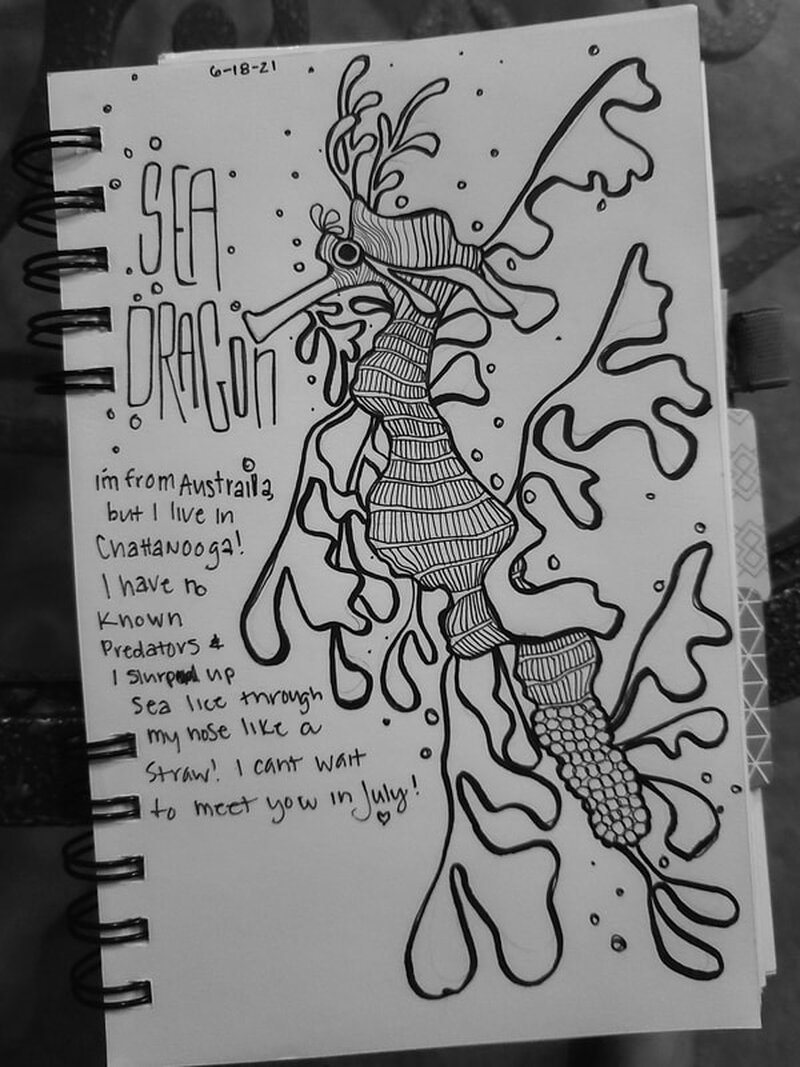 6-18-21
SEA
DRAGON
I'm from Australia,
but I live in
Chattanooga!
I have no
Known
Predators &
I slurp up
sea lice through
my nose like a
straw! I cant wait
to meet you in July!